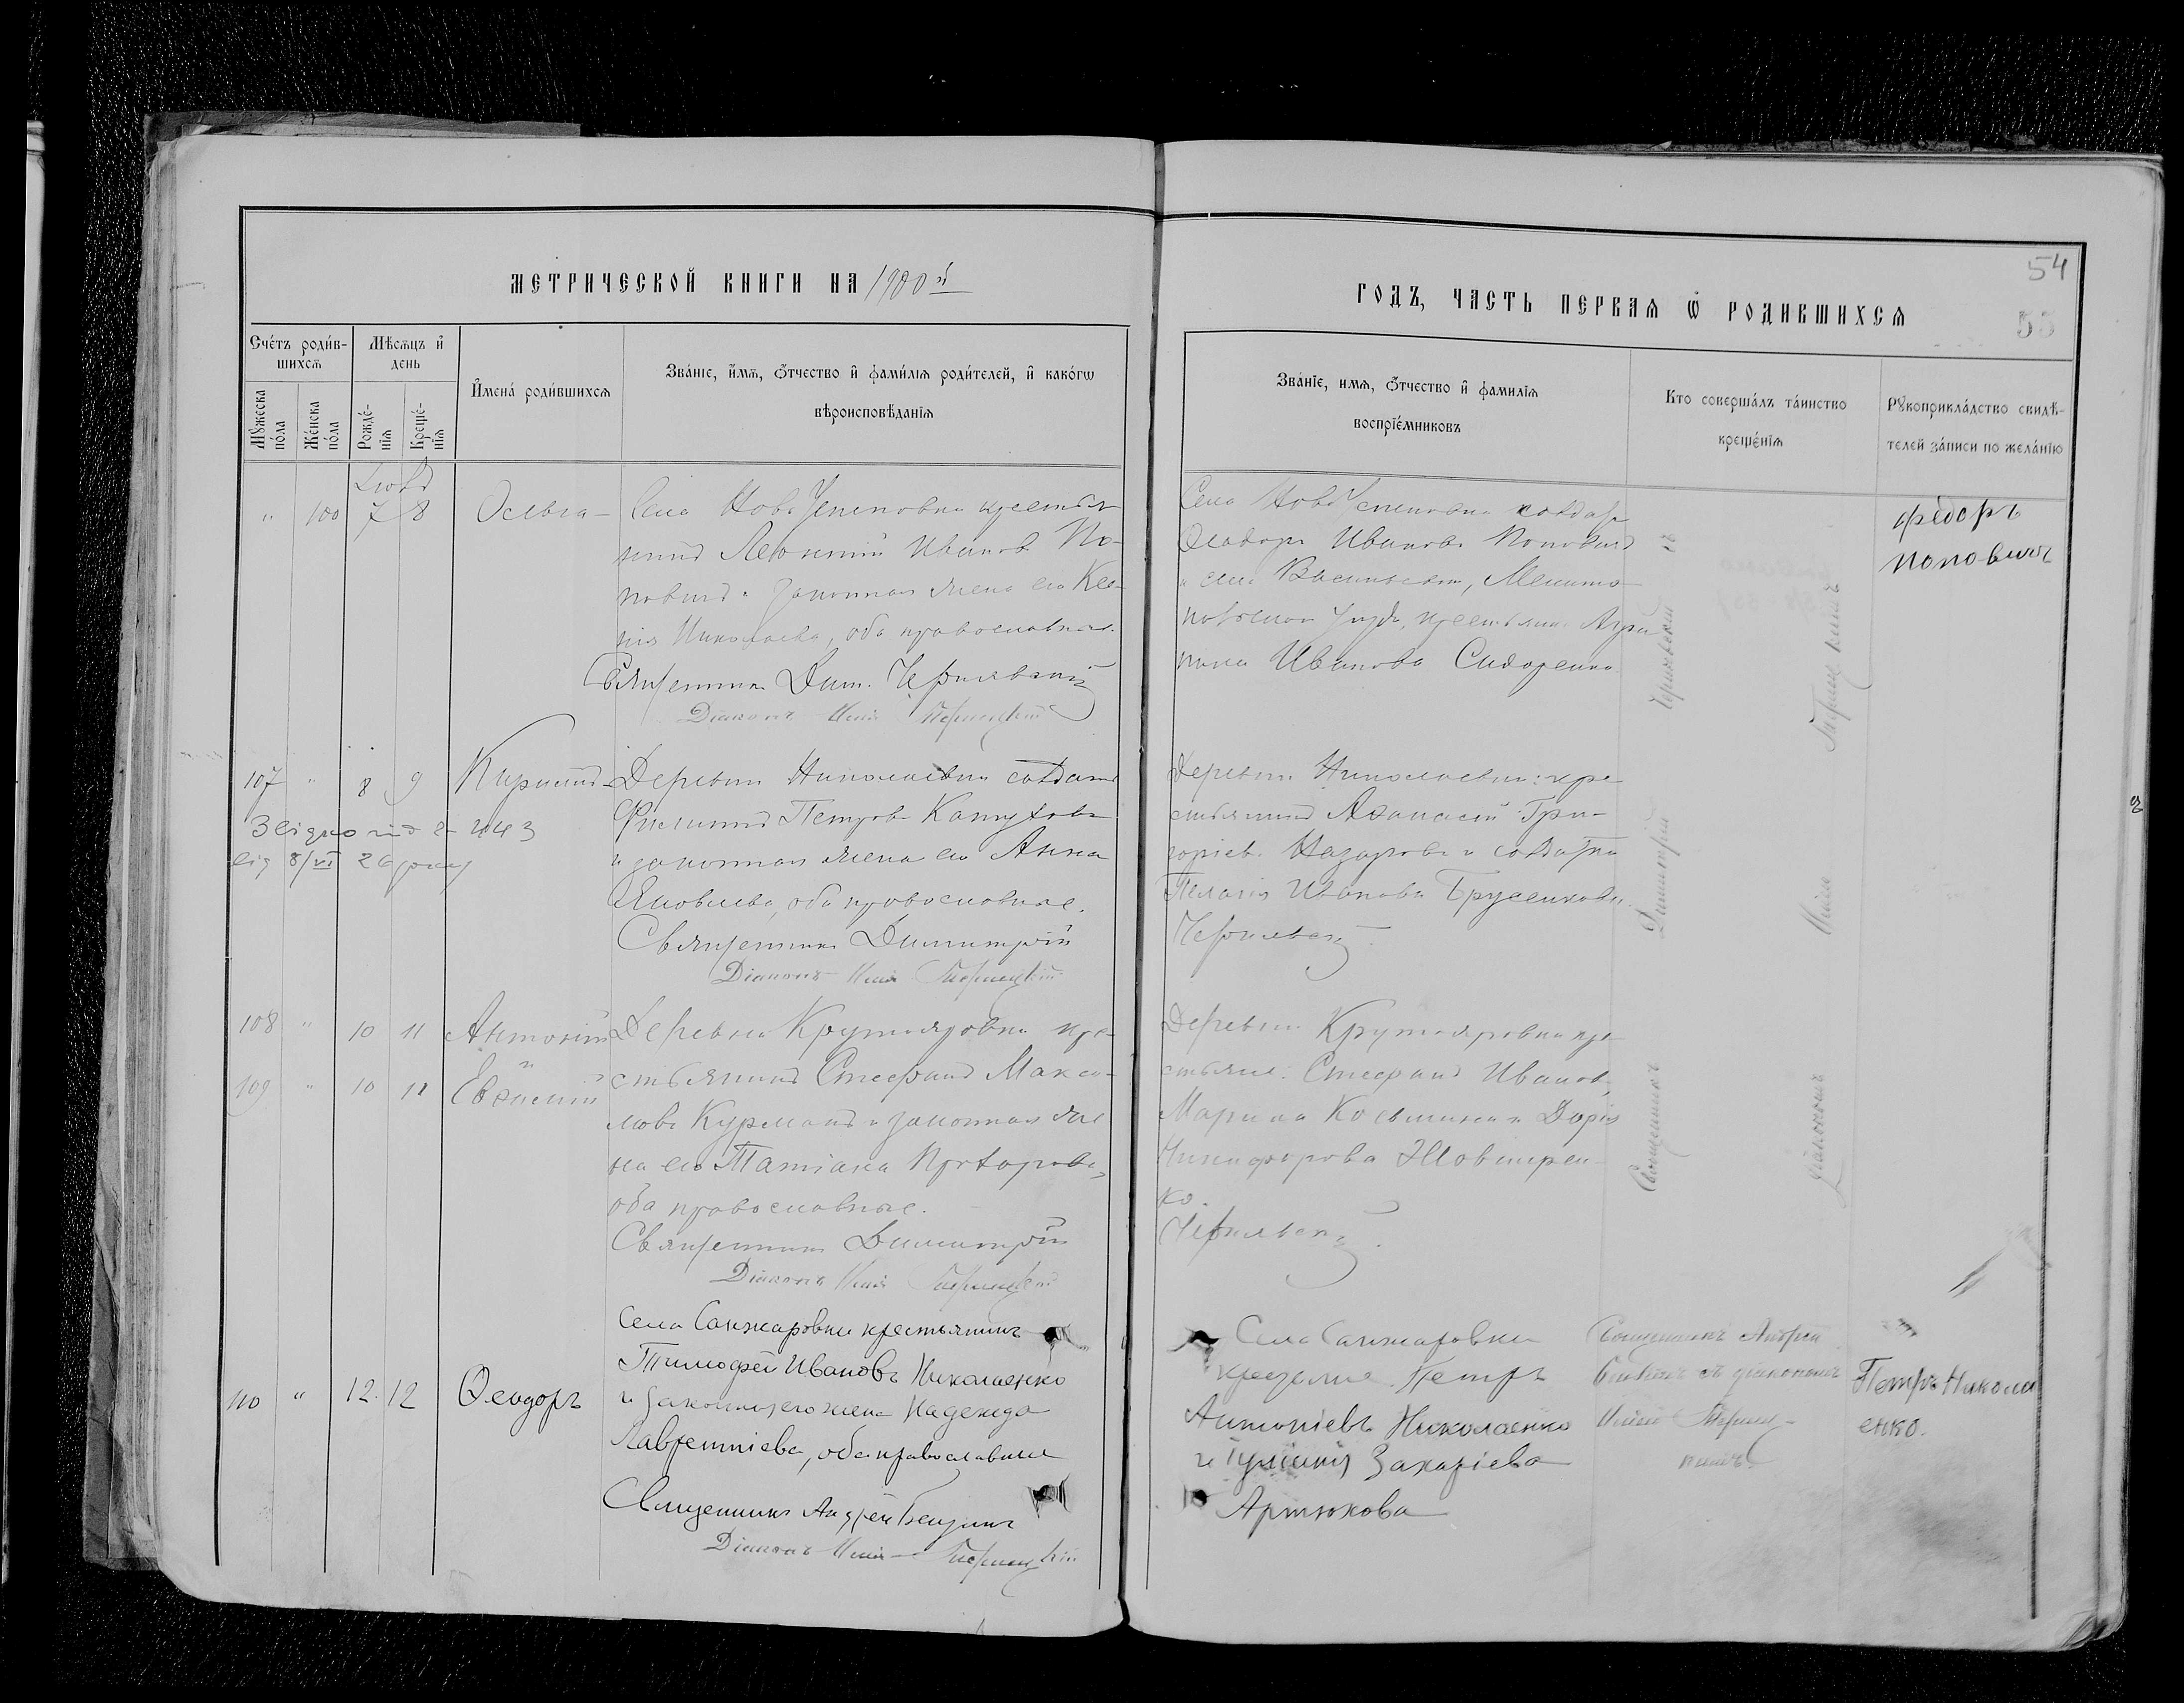 МЕТРИЧЕСКОЙ КНИГИ НА 1900й
ГОДЪ, ЧАСТЬ ПЕРВАЯ Ѡ РОДИВШИХСЯ
54
55
Сче́тъ роди́в-
шихся
Мѣсяцъ и҆
день
Мꙋжеска
по́ла
Же́нска
по́ла
Рожде́-
нїя
Креще́-
нїя
И҆мена̀ роди́вшихся
Зва́нїе, и҆мя, ѻ҆тчество и҆ фами́лїя роди́телей, и҆ како́гѡ
вѣроисповѣ́данїя
Зва́нїе, имя, ѻ҆тчество и҆ фамилїя
воспрїе́мниковъ
Кто соверша́лъ та́инство
креще́нїя
Рꙋкоприкла́дство свидѣ́-
телей за́писи по жела́нїю
" 100 7 8 Ольга
Села Ново Успеновки крестья-
нинъ Леонтій Иванов По-
повичъ и законная жена его Ксе-
нія Николаева, оба православные.
Священник Дим. Чернявскій
Діаконъ Илія
Села Ново Успеновки солдат
Ѳеодоръ Иванов Поповичъ
и села Васильевки, Мелито-
польскаго уезда, крестьянка Агри-
пина Иванова Сидоренко
Федоръ
Поповичъ
107 " 8 9 Кириллъ
Звідно під № 2043
від 8/VI 26 року
Деревни Николаевки солдатъ
Филиппъ Петров
и законная жена его Анна
Яковлева, оба православные.
Священник Димитрій
Діаконъ Илія
Деревни Николаевки: кре-
стьянинъ Аѳанасій Гри-
горіев Назаров и солдатка
Пелагія Иванова Брусенкова.
Чернявскій
108 " 10 11 Антоній
и
109 " 10 11 Евѳимій
Деревни Крутояровки кре-
стьянинъ Стефанъ Макси-
мов Курманъ и законная же-
на его Татіана Прохорова,
оба православные.
Священник Димитрій
Діаконъ Илія
Деревни Крутояровки кре-
стьяне: Стефанъ Иванов
Марина Косьмина и Дарія
Никифорова Жовтирен-
ко.
Чернявскій
Священникъ Димитрій Чернявскій съ
Діакономъ Иліею
110 " 12 12 Ѳеодоръ
Села Санжаровки крестьянинъ
Тимофей Ивановъ Николаенко
и законная его жена Надежда
Лаврентіева, оба православные
Священникъ Андрей
Діаконъ Илія
Села Санжаровки
крестьяне Петръ
Антоніевъ Николаенко
и Іуліанія Захаріева
Артюхова
Священникъ Андрей
съ діакономъ
Иліею
Петръ Никола
енко.